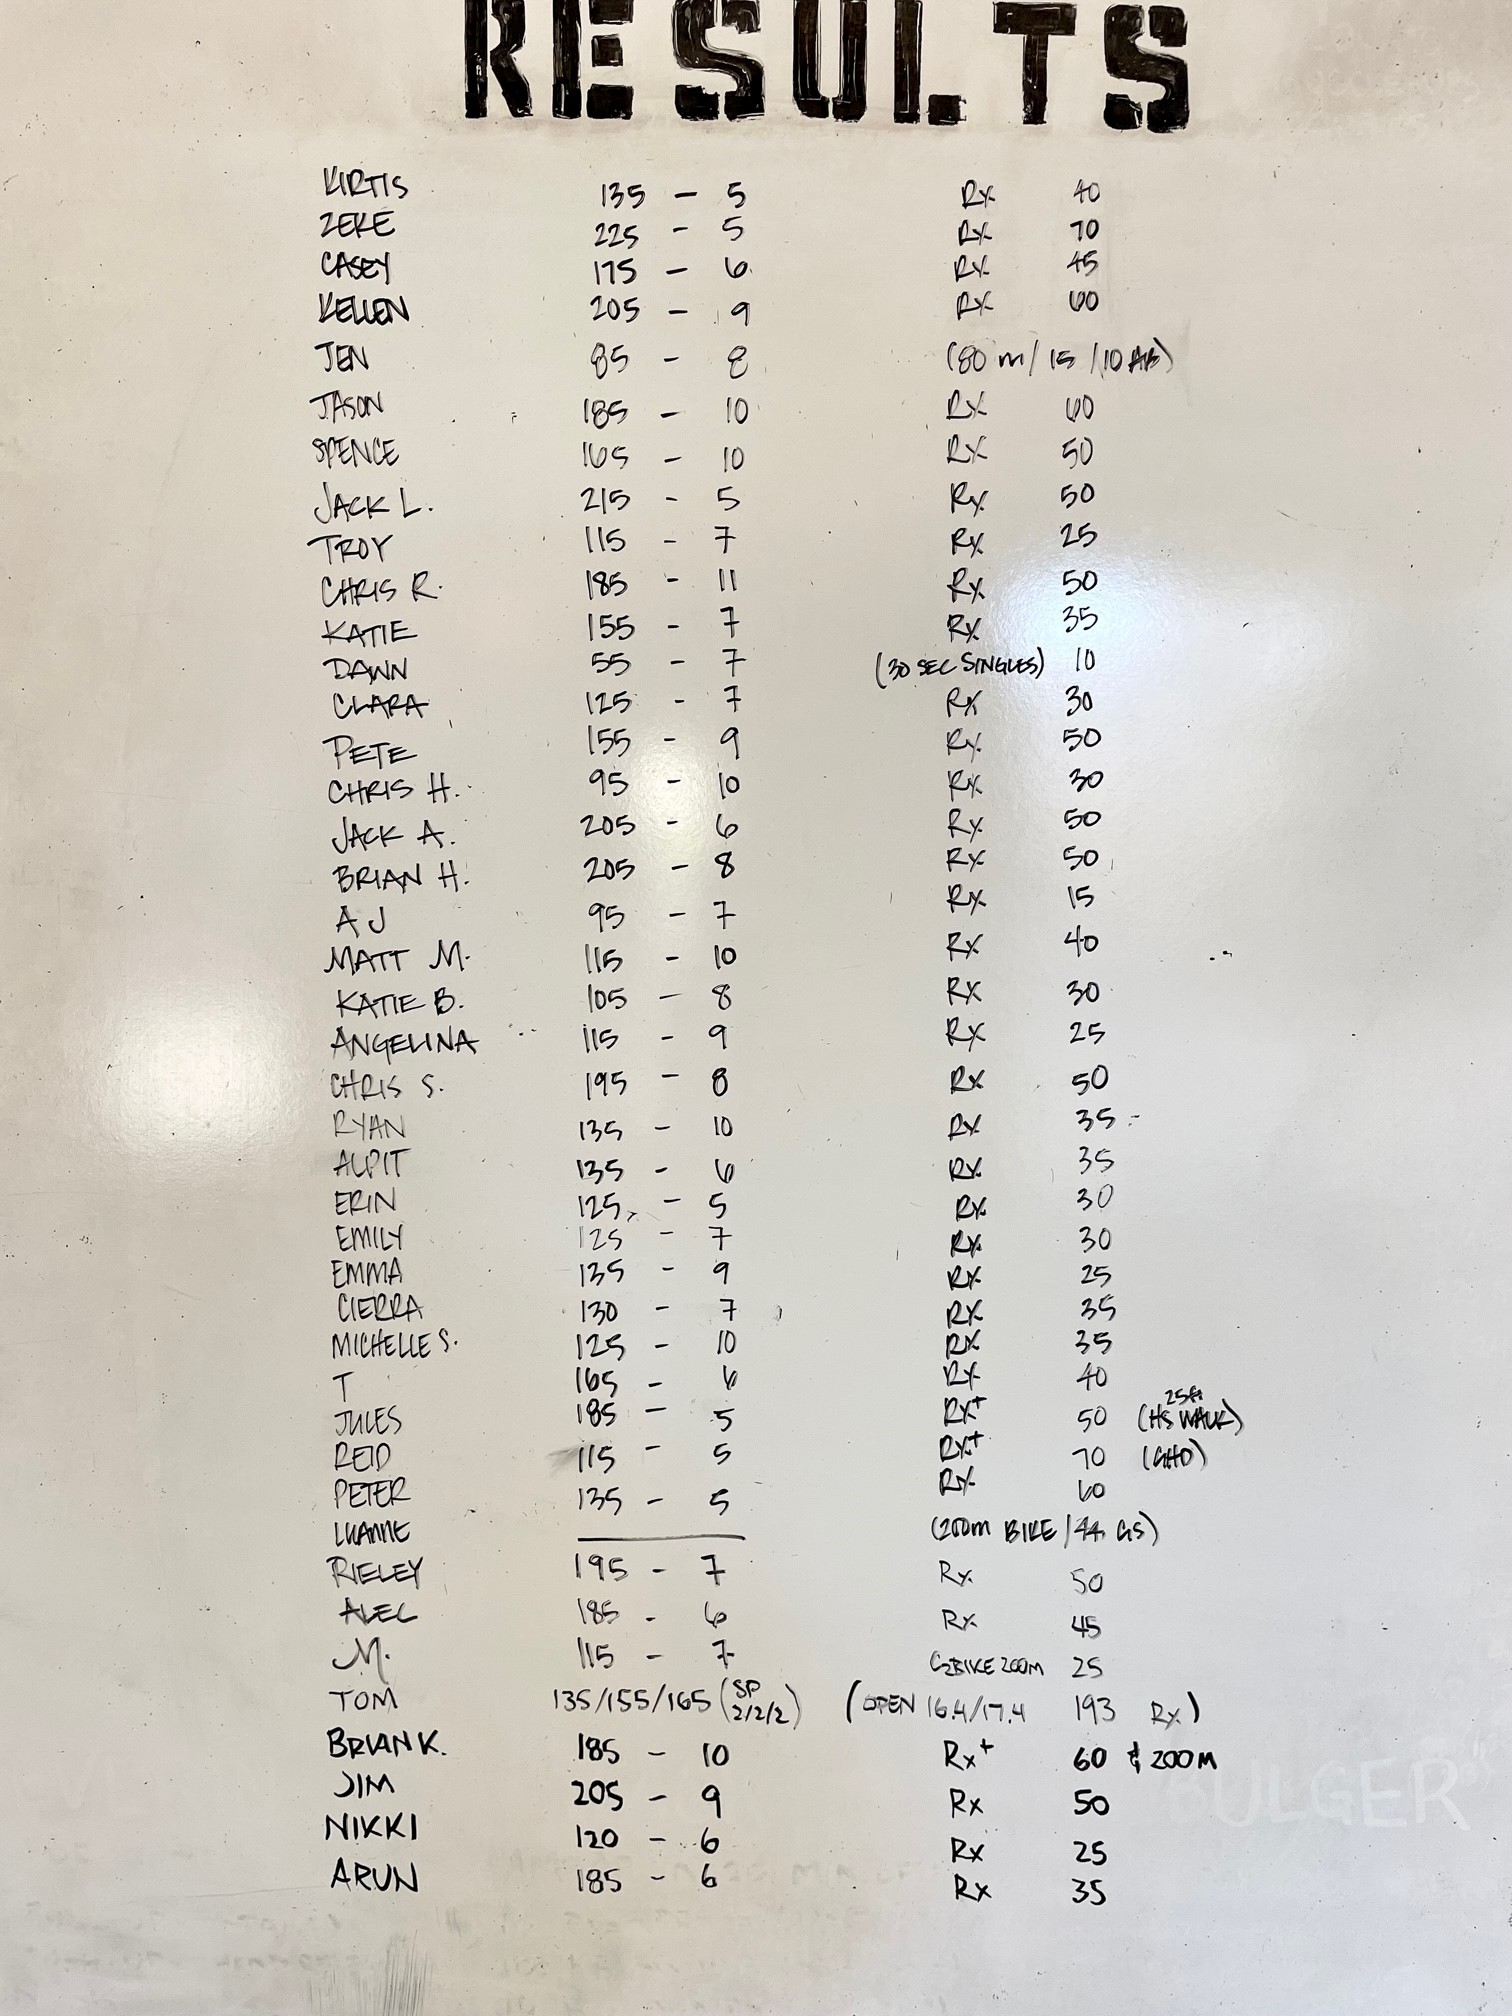 RESULTS
KIRTIS 135 - 5 Rx 40
ZEKE 225 - 5 Rx 70
CASEY 175 - 6 Rx 45
KELLEN 205 - 9 Rx 60
JEN 85 - 8 (80 m / 15 / 10 AB)
JASON 185 - 10 Rx 60
SPENCE 165 - 10 Rx 50
JACK L. 215 - 5 Rx 50
TROY 115 - 7 Rx 25
CHRIS R. 185 - 11 Rx 50
KATIE 155 - 7 Rx 35
DAWN 55 - 7 (30 SEC SINGLES) 10
CLARA 125 - 7 Rx 30
PETE 155 - 9 Rx 50
CHRIS H. 95 - 10 Rx 30
JACK A. 205 - 6 Rx 50
BRIAN H. 205 - 8 Rx 50
AJ 95 - 7 Rx 15
MATT M. 115 - 10 Rx 40
KATIE B. 105 - 8 Rx 30
ANGELINA 115 - 9 Rx 25
CHRIS S. 195 - 8 Rx 50
RYAN 135 - 10 Rx 35
ALPIT 135 - 6 Rx 35
ERIN 125 - 5 Rx 30
EMILY 125 - 7 Rx 30
EMMA 135 - 9 Rx 25
CIERRA 130 - 7 Rx 35
MICHELLE S. 125 - 10 Rx 35
T 165 - 6 Rx 40
JULES 185 - 5 Rx+ 50 (25ft HS WALK)
REID 115 - 5 Rx+ 70 (GHD)
PETER 135 - 5 Rx 60
LUANNE (200m BIKE / 44 GS)
RIELEY 195 - 7 Rx 50
ALEC 185 - 6 Rx 45
M. 115 - 7 C2BIKE 200M 25
TOM 135/155/165 (SP 2/2/2) (OPEN 16.4/17.4 193 Rx)
BRIAN K. 185 - 10 Rx+ 60 & 200M
JIM 205 - 9 Rx 50
NIKKI 120 - 6 Rx 25
ARUN 185 - 6 Rx 35
BULGER